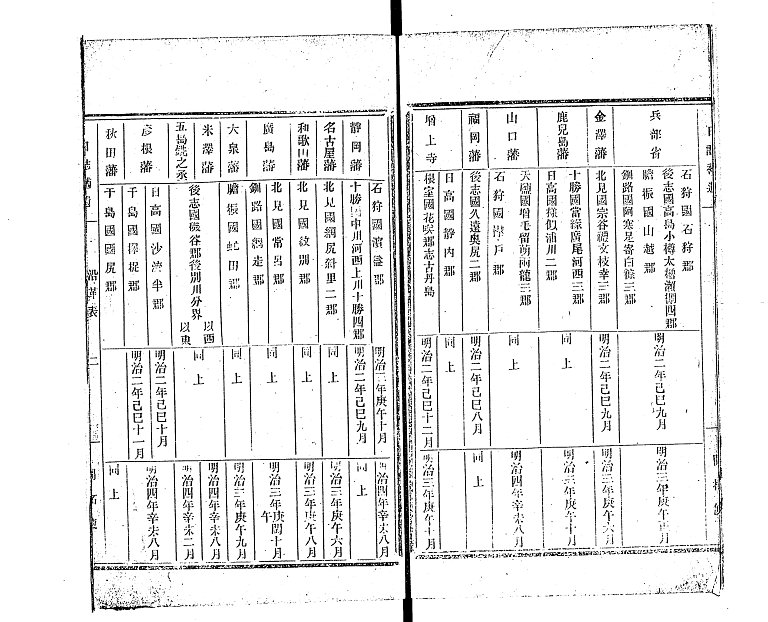 兵部省
石狩國石狩郡
後志國高島小樽太櫓瀨棚四郡
膽振國山越郡
釧路國阿寒足寄白糠三郡
明治二年己巳九月
明治三年庚午正月
金澤藩
北見國宗谷禮文枝幸三郡
明治二年己巳九月
明治三年庚午六月
鹿兒島藩
十勝國當緣廣尾河西三郡
日高國樣似浦川二郡
明治三年庚午十月
山口藩
天鹽國增毛留萠雨龍三郡
石狩國樺戶郡
同上
明治四年辛未八月
福岡藩
後志國久遠奧尻二郡
明治二年己巳八月
同上
增上寺
日高國靜內郡
根室國花咲郡志古丹島
明治二年己巳十二月
明治三年庚午十月
靜岡藩
石狩國濱益郡
十勝國中川河西上川十勝四郡
明治三年庚午十月
明治二年己巳九月
明治四年辛未八月
同上
名古屋藩
北見國網尻斜里二郡
同上
明治三年庚午六月
和歌山藩
北見國紋別郡
同上
明治三年庚午八月
廣島藩
北見國常呂郡
釧路國網走郡
同上
明治三年庚午閏十月
大泉藩
膽振國虻田郡
同上
明治三年庚午九月
米澤藩
五島銑之丞
後志國磯谷郡後別川分界
以西
以東
同上
明治四年辛未八月
明治四年辛未二月
彥根藩
日高國沙流半郡
千島國擇捉郡
明治二年己巳十月
明治二年己巳十一月
明治四年辛未八月
秋田藩
千島國國尻郡
同上
沿革表
二